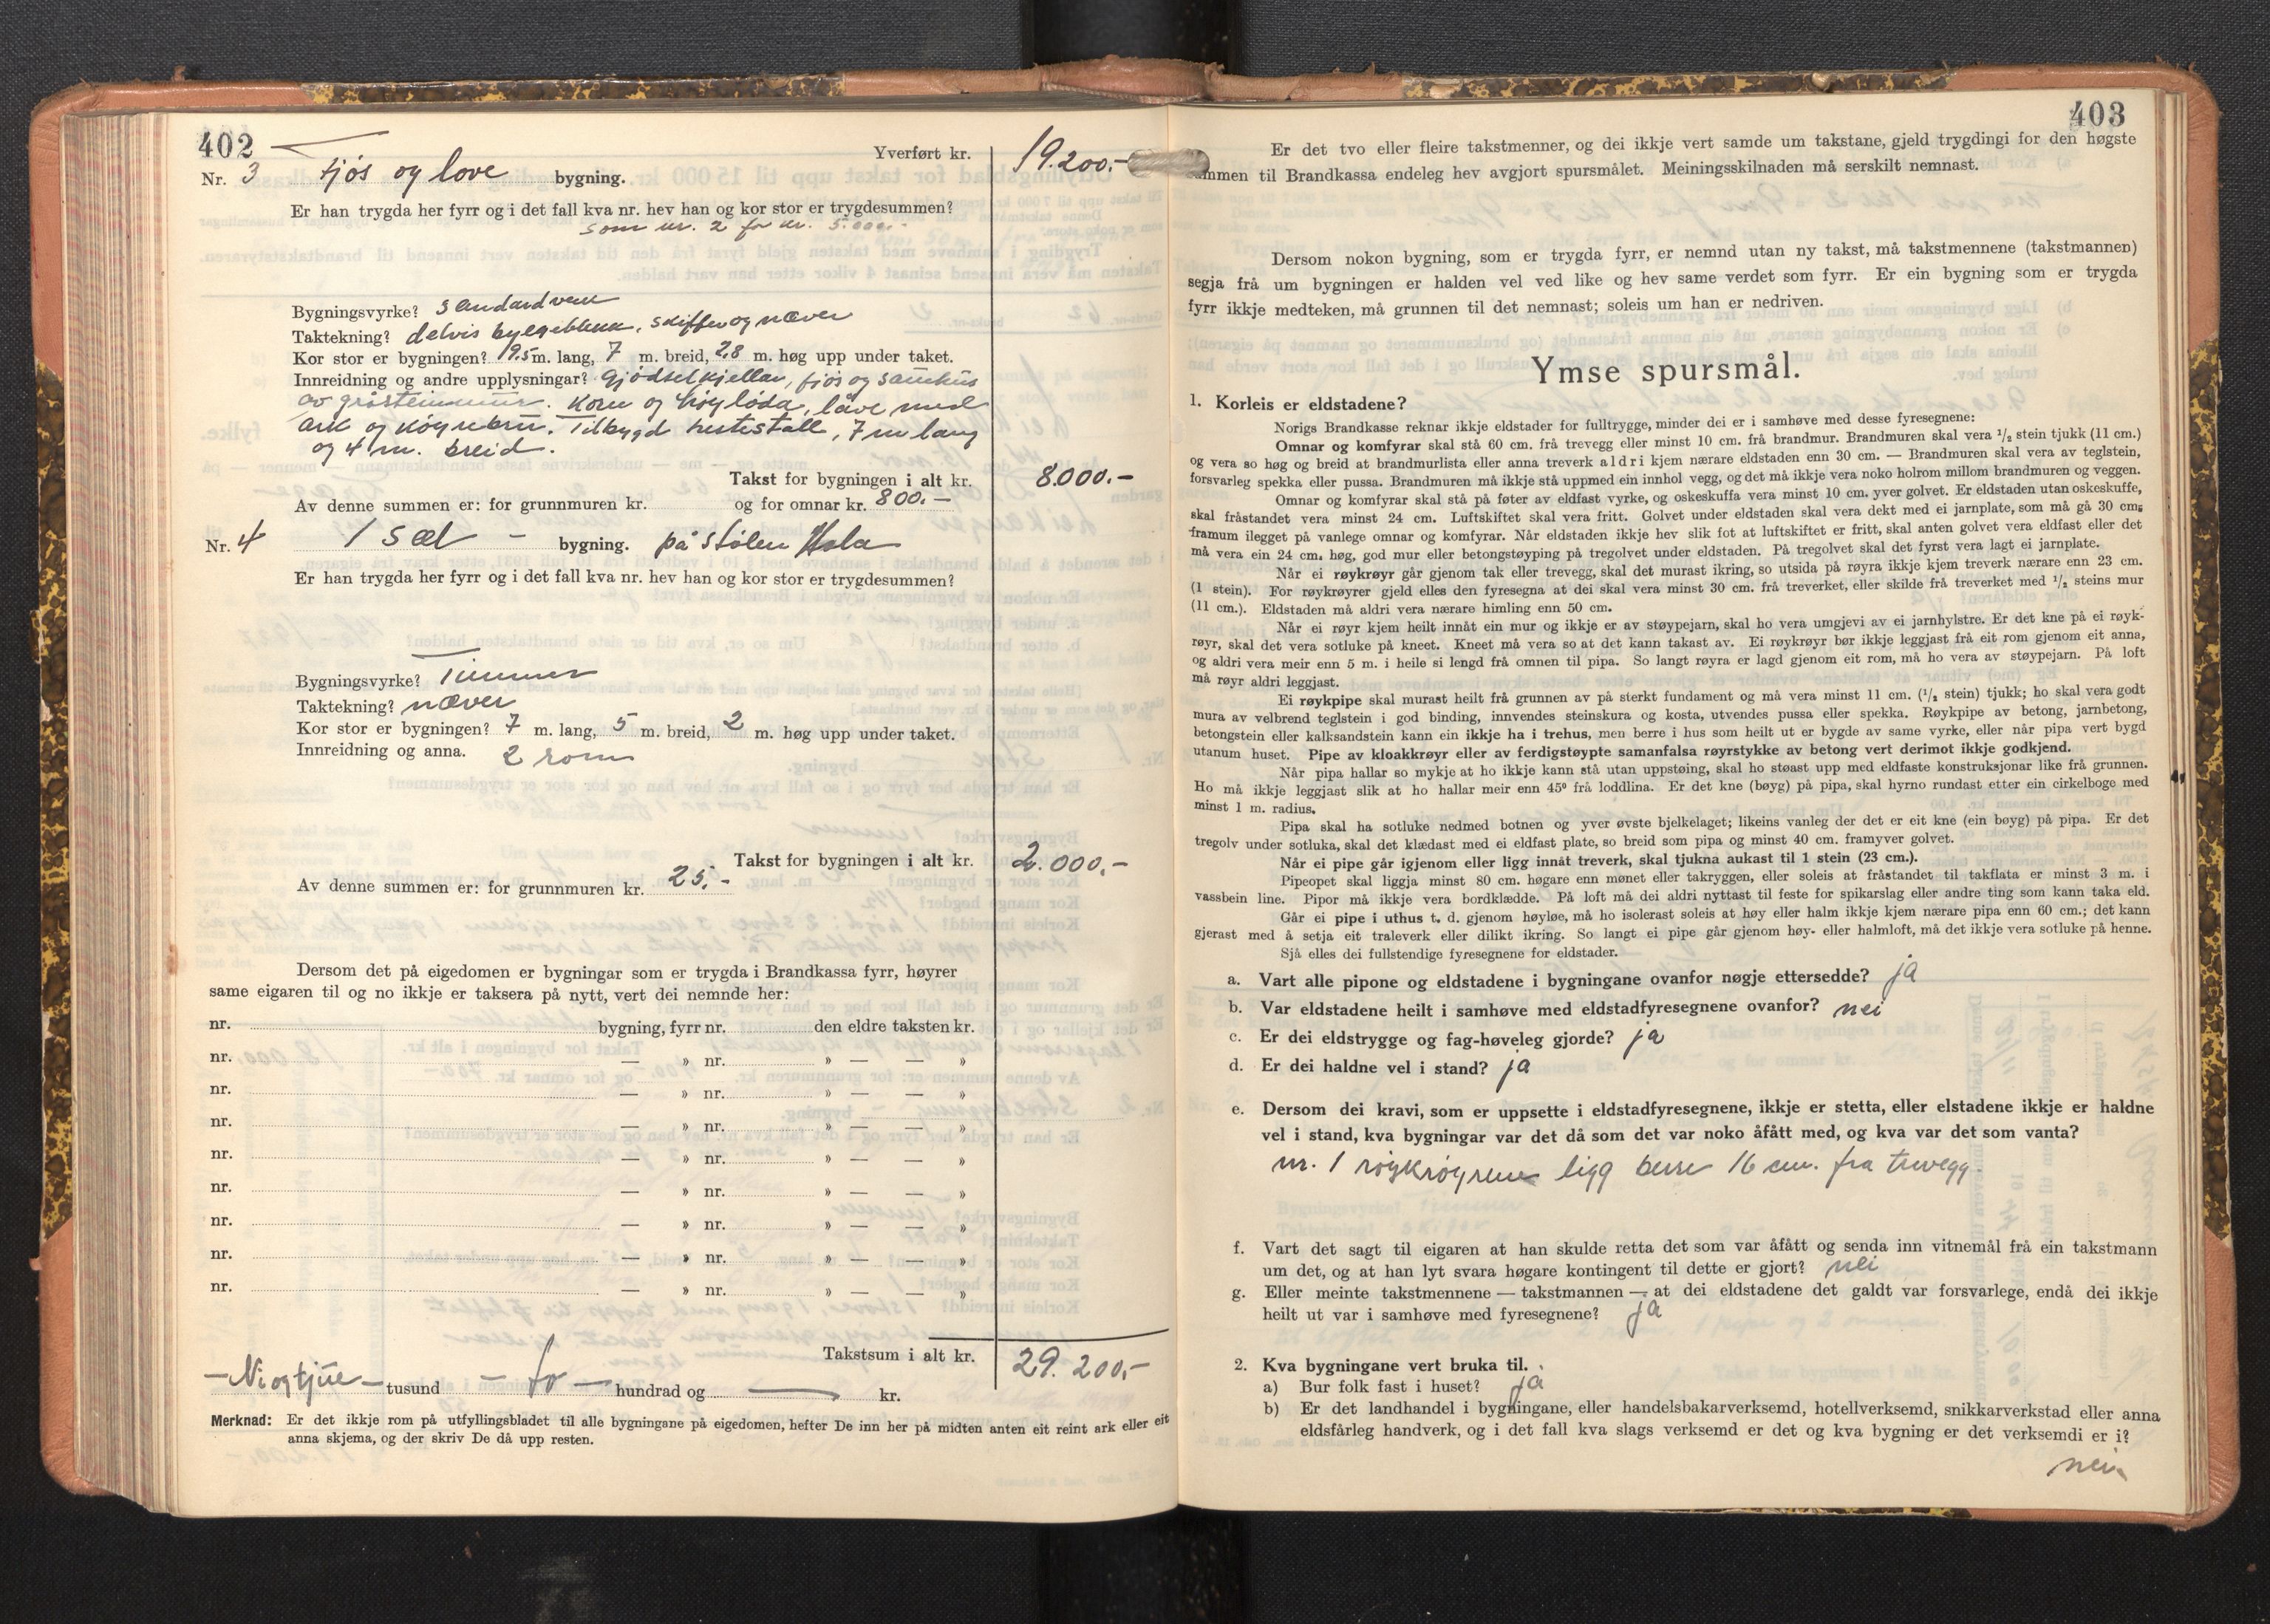 402
Yverført kr. 19.200.-
Nr. 3 Fjøs og løve bygning.
Er han trygda her fyrr og i det fall kva nr. hev han og kor stor er trygdesummen?
som nr. 2 for kr. 5.000.-
Bygningsvyrke?
Taktekning? delvis bylgjeblekk, skiffer og næver
Kor stor er bygningen? 19.5 m. lang, 7 m. breid, 2,8 m. høg upp under taket.
Innreidning og andre upplysningar? Gjødselkjellar, fjøs og sauehus
av gråsteinmur. Korn og høyløda, låve med
ark og køyrebru. Tilbygd hestestall, 7 m lang
og 4 m. breid.
Takst for bygningen i alt kr. 8.000.-
Av denne summen er: for grunnmuren kr. og for omnar kr. 800.-
Nr. 4 1 Sæl - bygning. på Stølen Hola
Er han trygda her fyrr og i det fall kva nr. hev han og kor stor er trygdesummen?
Bygningsvyrke? Timmer
Taktekning? næver
Kor stor er bygningen? 7 m. lang, 5 m. breid, 2 m. høg upp under taket.
Innreidning og anna. 2 rom
Takst for bygningen i alt kr. 2.000.-
Av denne summen er: for grunnmuren kr. 25.-
Dersom det på eigedomen er bygningar som er trygda i Brandkassa fyrr, høyrer
same eigaren til og no ikkje er taksera på nytt, vert dei nemnde her:
nr. bygning, fyrr nr. den eldre taksten kr.
nr. — » nr. » — — »
nr. — » nr. » — — »
nr. — » nr. » — — »
nr. — » nr. » — — »
nr. — » nr. » — — »
nr. — » nr. » — — »
nr. — » nr. » — — »
nr. — » nr. » — — »
Takstsum i alt kr. 29.200,-
— Ni og tjue — tusund - to — hundrad og — kr.
Merknad: Er det ikkje rom på utfyllingsbladet til alle bygningane på eigedomen, hefter De inn her på midten anten eit reint ark eller eit
anna skjema, og der skriv De då upp resten.
403
Er det tvo eller fleire takstmenner, og dei ikkje vert samde um takstane, gjeld trygdingi for den høgste
summen til Brandkassa endeleg hev avgjort spursmålet. Meiningsskilnaden må serskilt nemnast.
Dersom nokon bygning, som er trygda fyrr, er nemnd utan ny takst, må takstmennene (takstmannen)
segja frå um bygningen er halden vel ved like og hev same verdet som fyrr. Er ein bygning som er trygda
fyrr ikkje medteken, må grunnen til det nemnast; soleis um han er nedriven.
Ymse spursmål.
1. Korleis er eldstadene?
Norigs Brandkasse reknar ikkje eldstader for fulltrygge, minder dei er i samhøve med desse fyresegnene:
Omnar og komfyrar skal stå 60 cm. frå trevegg eller minst 10 cm. frå brandmur. Brandmuren skal vera ½ stein tjukk (11 cm.)
og vera so høg og breid at brandmurlista eller anna treverk aldri kjem nærare eldstaden enn 30 cm. — Brandmuren skal vera av teglstein,
forsvarleg spekka eller pussa. Brandmuren må ikkje stå uppmed ein innhol vegg, og det må ikkje vera noko holrom millom brandmuren og veggen.
Omnar og komfyrar skal stå på føter av eldfast vyrke, og oskeskuffa vera minst 10 cm. yver golvet. Er eldstaden utan oskeskuffe,
skal fråstandet vera minst 24 cm. Luftskiftet skal vera fritt. Golvet under eldstaden skal vera dekt med ei jarnplate, som må gå 30 cm.
framum ilegget på vanlege omnar og komfyrar. Når eldstaden ikkje hev slik fot at luftskiftet er fritt, skal anten golvet vera eldfast eller det
må vera ein 24 cm. høg, god mur eller betongstøyping på tregolvet under eldstaden. På tregolvet skal det fyrst vera lagt ei jarnplate.
Når ei røykrøyr går gjenom tak eller trevegg, skal det murast ikring, so utsida på røyra ikkje kjem treverk nærare enn 23 cm.
(1 stein). For røykrøyrer gjeld elles den fyresegna at dei skal vera minst 30 cm. frå treverket, eller skilde frå treverket med ½ steins mur
(11 cm.). Eldstaden må aldri vera nærare himling enn 50 cm.
Når ei røyr kjem heilt innåt ein mur og ikkje er av støypejarn, skal ho vera umgjevi av ei jarnhylstre. Er det kne på ei røyk-
røyr, skal det vera sotluke på kneet. Kneet må vera so at det kann takast av. Ei røykrøyr bør ikkje leggjast frå eit rom gjenom eit anna,
og aldri vera meir enn 5 m. i heile si lengd frå omnen til pipa. So langt røyra er lagd gjenom eit rom, må ho vera av støypejarn. På loft
må røyr aldri leggjast.
Ei røykpipe skal murast heilt frå grunnen av på sterkt fundament og må vera minst 11 cm. (½ stein) tjukk; ho skal vera godt
mura av velbrend teglstein i god binding, innvendes steinskura og kosta, utvendes pussa eller spekka. Røykpipe av betong, jarnbetong,
betongstein eller kalksandstein kann ein ikkje ha i trehus, men berre i hus som heilt ut er bygde av same vyrke, eller når pipa vert bygd
utanum huset. Pipe av kloakkrøyr eller av ferdigstøypte samanfalsa røyrstykke av betong vert derimot ikkje godkjend.
Når pipa hallar so mykje at ho ikkje kann stå utan uppstøing, skal ho støast upp med eldfaste konstruksjonar like frå grunnen.
Ho må ikkje leggjast slik at ho hallar meir enn 45° frå loddlina. Er det kne (bøyg) på pipa, skal hyrno rundast etter ein cirkelboge med
minst 1 m. radius.
Pipa skal ha sotluke nedmed botnen og yver øvste bjelkelaget; likeins vanleg der det er eit kne (ein bøyg) på pipa. Er det
tregolv under sotluka, skal det klædast med ei eldfast plate, so breid som pipa og minst 40 cm. framyver golvet.
Når ei pipe går igjenom eller ligg innåt treverk, skal tjukna aukast til 1 stein (23 cm.).
Pipeopet skal liggja minst 80 cm. høgare enn mønet eller takryggen, eller soleis at fråstandet til takflata er minst 3 m. i
vassbein line. Pipor må ikkje vera bordklædde. På loft må dei aldri nyttast til feste for spikarslag eller andre ting som kann taka eld.
Går ei pipe i uthus t. d. gjenom høyløe, må ho isolerast soleis at høy eller halm ikkje kjem nærare pipa enn 60 cm.; det kann
gjerast med å setja eit traleverk eller dilikt ikring. So langt ei pipe går gjenom høy- eller halmloft, må det ikkje vera sotluke på henne.
Sjå elles dei fullstendige fyresegnene for eldstader.
a. Vart alle pipone og eldstadene i bygningane ovanfor nøgje ettersedde? ja
b. Var eldstadene heilt i samhøve med eldstadfyresegnene ovanfor? nei
c. Er dei eldstrygge og fag-høveleg gjorde? ja
d. Er dei haldne vel i stand? ja
e. Dersom dei kravi, som er uppsette i eldstadfyresegnene, ikkje er stetta, eller elstadene ikkje er haldne
vel i stand, kva bygningar var det då som det var noko åfått med, og kva var det som vanta?
nr. 1 røykrøyrene ligg berre 16 cm. fra trevegg.
f. Vart det sagt til eigaren at han skulde retta det som var åfått og senda inn vitnemål frå ein takstmann
um det, og at han lyt svara høgare kontingent til dette er gjort? nei
g. Eller meinte takstmennene — takstmannen — at dei eldstadene det galdt var forsvarlege, endå dei ikkje
heilt ut var i samhøve med fyresegnene? ja
2. Kva bygningane vert bruka til.
a) Bur folk fast i huset? ja
b) Er det landhandel i bygningane, eller handelsbakarverksemd, hotellverksemd, snikkarverkstad eller anna
eldsfårleg handverk, og i det fall kva slags verksemd er det og kva bygning er det verksemdi er i?
nei